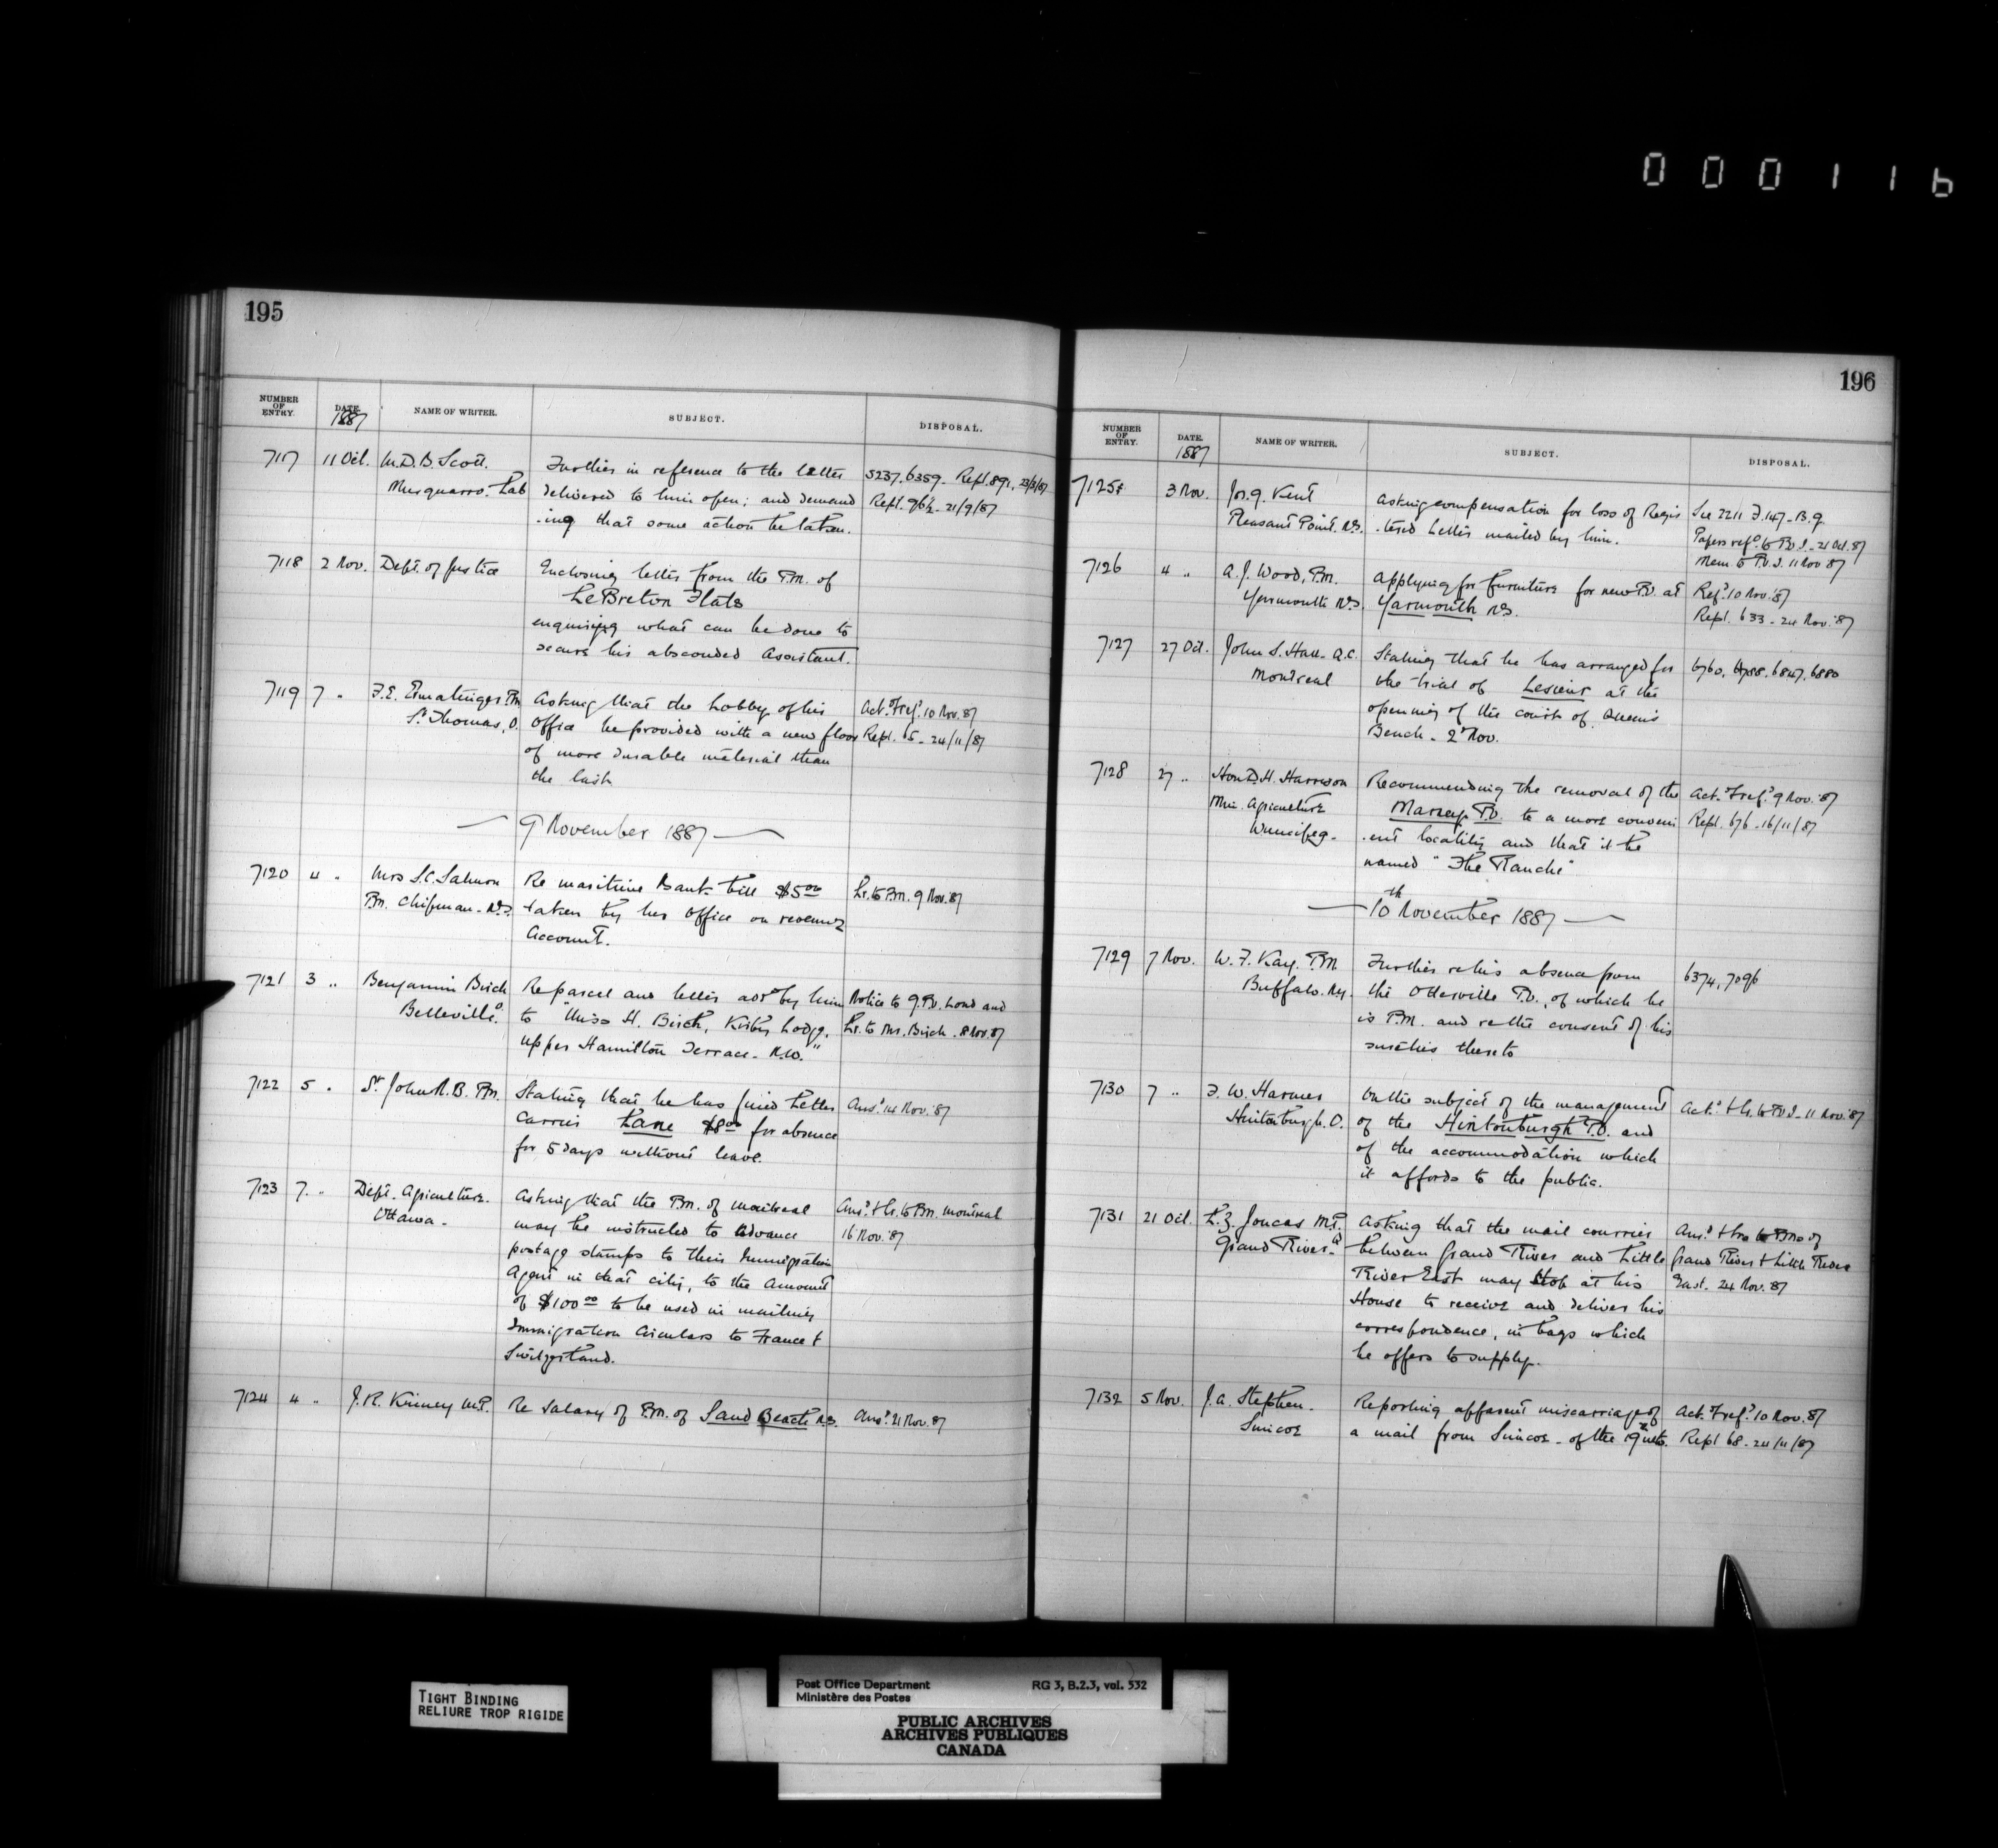 000116
195
NUMBER OF ENTRY. DATE. 1887 NAME OF WRITER. SUBJECT. DISPOSAL.
7117 11 Oct. M.D.B. Scott. Further in reference to the letter 5237. 6359. Repl. 891, 23/3/87
Musquarro. Lab delivered to him open; and demand Rept. 962 - 21/9/87
-ing that some action be taken.
7118 2 Nov. Dept. of Justice Enclosing letter from the P.M. of
LeBreton Flats
enquiring what can be done to
secure his absconded Assistant.
7119 7 " F.E. Ermatinger P.M. Asking that the Lobby of his Act. & ref. 10 Nov. 87
St Thomas, O. Office be provided with a new floor Rept. 65 - 24/11/87
of more durable material than
the last
9 November 1887
7120 4 " Mrs S.C. Salmon Re maritime Bank bill $5.00 Lr. to P.M. 9 Nov. 87
P.M. Chipman - N.S. taken by her Office on revenue
Account.
7121 3 " Benjamin Birch Re parcel and letter adsd by him Notice to G.P.O. Lond and
Belleville. O. to "Miss H. Birch, Kirby Lodge, Lr. to Mr. Birch. 8 Nov. 87
Upper Hamilton Terrace - N.W."
7122 5 " St John N.B. P.M. Stating that he has fined Letter Ansd. 14 Nov. 87
Carrier Lane $8.00 for absence
for 5 days without leave.
7123 7 " Dept. Agriculture. Asking that the P.M. of Montreal Ansd. & lr. to P.M. Montreal
Ottawa - may be instructed to advance 16 Nov. 87
postage stamps to their Immigration
Agent in that city, to the Amount
of $100.00 to be used in mailing
Immigration Circulars to France &
Switzerland.
7124 4 " J.R. Kinney M.P. Re Salary of P.M. of Sand Beach N.S. Ansd. 21 Nov. 87
196
NUMBER OF ENTRY. DATE. 1887 NAME OF WRITER. SUBJECT. DISPOSAL.
7125 3 Nov. Kent Asking compensation for loss of Regis See 2211 F. 147 - B.9.
Pleasant Point. N.S. -tered Letter mailed by him. Papers refd. to P.O.I. - 21 Oct. 87
Mem. to P.O.I. 11 Nov 87
7126 4 " A.J. Wood, P.M. Applying for furniture for new P.O. at Refd. 10 Nov. 87
Yarmouth N.S. Yarmouth N.S. Rept. 633 - 24 Nov. 87
7127 27 Oct. John S. Hall - Q.C. Stating that he has arranged for 6760. 6788. 6847. 6880
Montreal the trial of Lesieur at the
opening of the court of Queen's
Bench - 2 Nov.
7128 27 " Hon D.H. Harrison Recommending the removal of the Act. & ref. 9 Nov. 87
Min. Agriculture P.O. to a more conveni Rept. 676 - 16/11/87
Winnipeg - -ent locality and that it be
named "The Ranche"
10th November 1887
7129 7 Nov. W.F. Kay. P.M. Further re his absence from 6374, 7096
Buffalo. N.Y. the Otterville P.O., of which he
is P.M. and re the consent of his
sureties thereto
7130 7 " F.W. Harmer On the subject of the management Act. & lr. to P.O.I. - 11 Nov. 87
Hintonburgh. O. of the Hintonburgh P.O. and
of the accommodation which
it affords to the public.
7131 21 Oct. L.Z. Joncas M.P. Asking that the mail courrier Ansd. & lrs to P.Ms of
Grand River. Q between Grand River and Little Grand River & Little River
River East may stop at his East. 24 Nov. 87
House to receive and deliver his
correspondence, in bags which
he offers to supply.
7132 5 Nov. J.A. Stephen. Reporting apparent miscarriage of Act. & ref. 10 Nov. 87
Simcoe a mail from Simcoe - of the ult. Rept 68 - 24/11/87
TIGHT BINDING
RELIURE TROP RIGIDE
Post Office Department RG 3, B.2.3, vol. 532
Ministère des Postes
PUBLIC ARCHIVES
ARCHIVES PUBLIQUES
CANADA